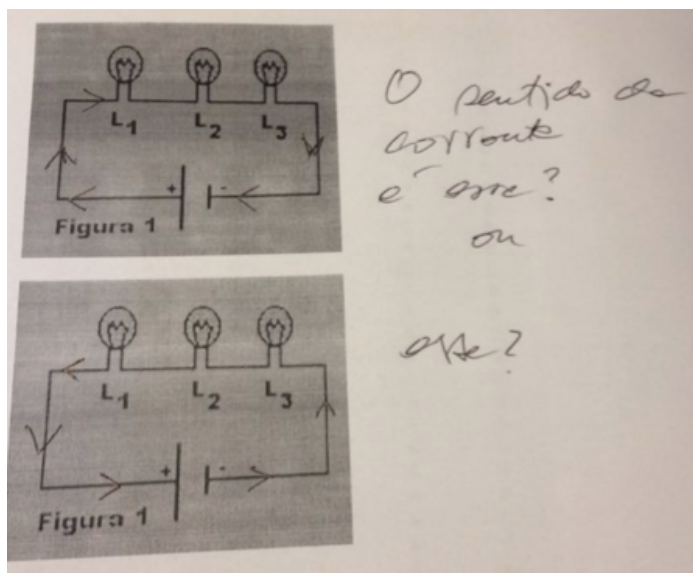 L₁ L₂ L₃
+ -
Figura 1
O sentido da
corrente
é esse?
ou
L₁ L₂ L₃
esse?
+ -
Figura 1